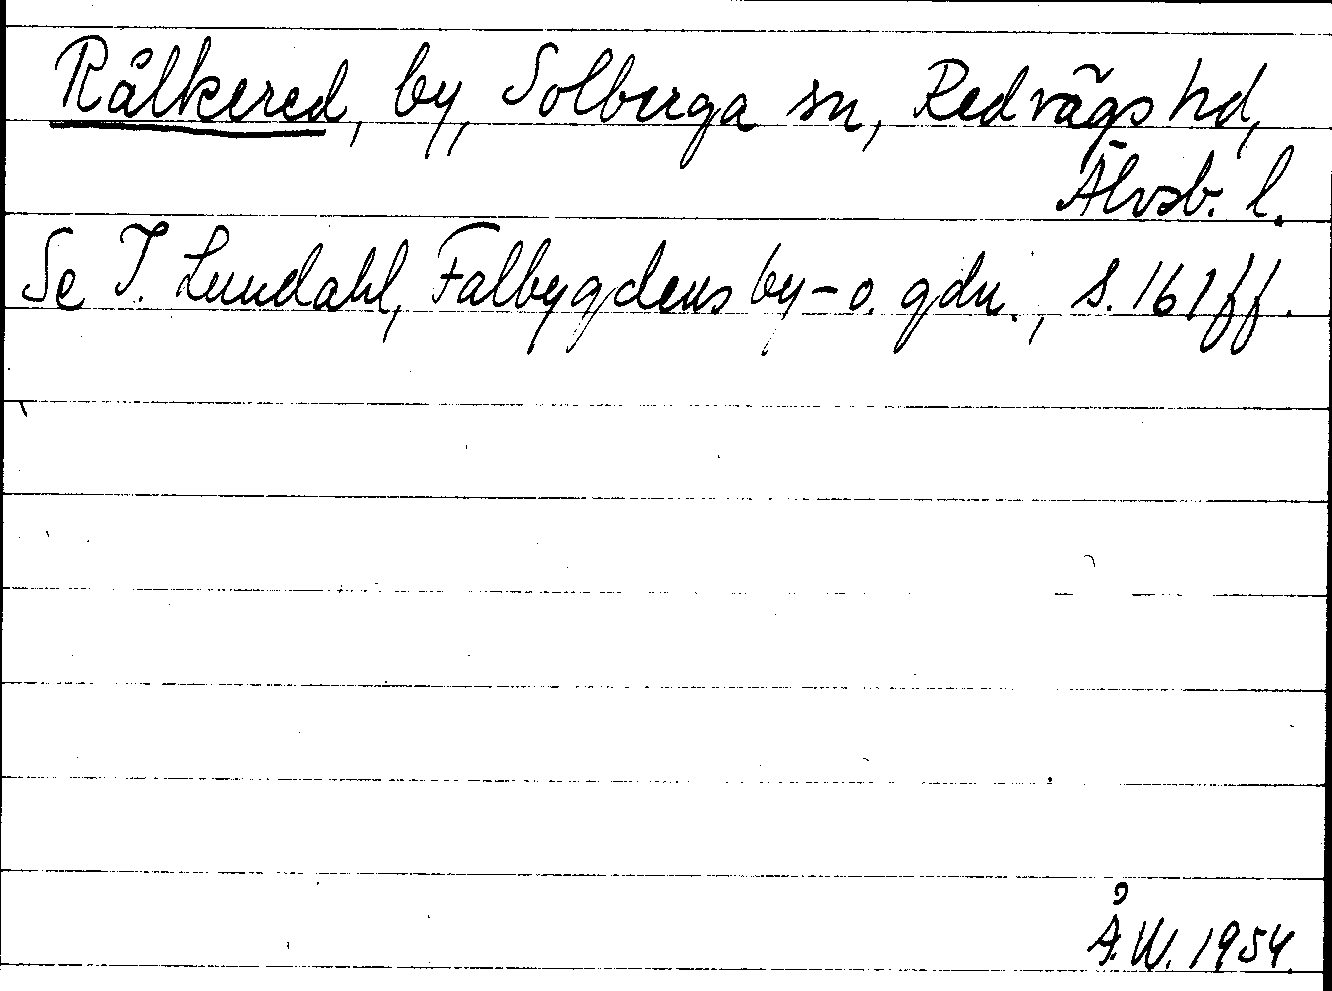 Rålkered, by, Solberga sn, Redvägs hd,
Älvsb. l.
Se I. Lundahl, Falbygdens by- o. gdn., s. 161 ff.
Å.W. 1954.